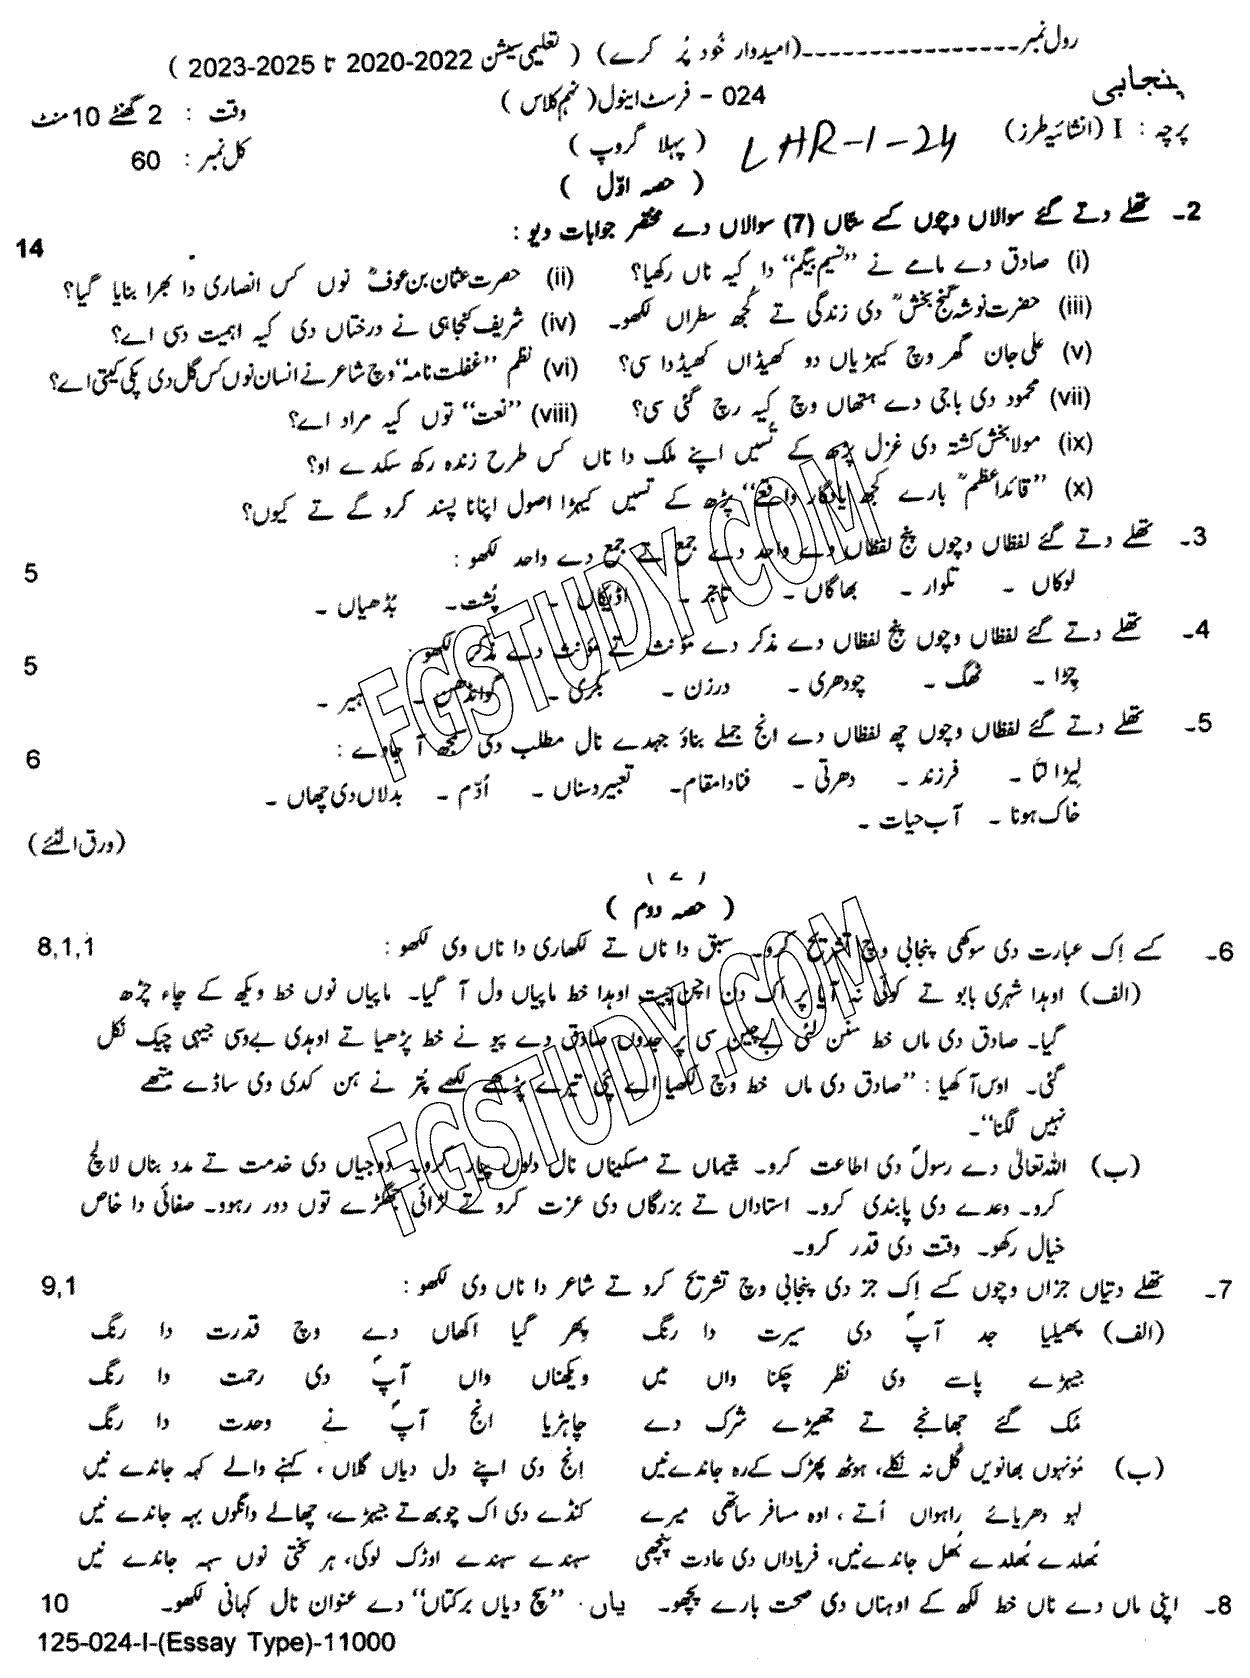 رول نمبر ـ ـ ـ ـ ـ ـ ـ ـ ـ ـ ـ ـ ـ ـ ـ ـ (امیدوار خُود پُر کرے) ( تعلیمی سیشن 2022-2020 تا 2025-2023 )
پنجابی 024 - فرسٹ اینول (نہم کلاس) وقت : 2 گھنٹے 10 منٹ
پرچہ : I (انشائیہ طرز) LHR-1-24 ( پہلا گروپ ) کل نمبر : 60
( حصہ اوّل )
2۔ تھلے دتے گئے سوالاں وچوں کے ستّاں (7) سوالاں دے مختصر جوابات دیو : 14
(i) صادق دے مامے نے ’’نسیم بیگم‘‘ دا کیہ ناں رکھیا؟ (ii) حضرت عثمان بن عوفؓ نوں کس انصاری دا بھرا بنایا گیا؟
(iii) حضرت نوشہ گنج بخشؒ دی زندگی تے کُجھ سطراں لکھو۔ (iv) شریف کنجاہی نے درختاں دی کیہ اہمیت دسی اے؟
(v) علی جان گھر وچ کیہڑیاں دو کھیڈاں کھیڈدا سی؟ (vi) نظم ’’غفلت نامہ‘‘ وچ شاعر نے انسان نوں کس گل دی پکی کیتی اے؟
(vii) محمود دی باجی دے ہتھاں وچ کیہ رچ گئی سی؟ (viii) ’’نعت‘‘ توں کیہ مراد اے؟
(ix) مولا بخش کشتہ دی غزل پڑھ کے تسیں اپنے ملک دا ناں کس طرح زندہ رکھ سکدے او؟
(x) ’’قائداعظمؒ بارے کجھ یادگار واقعے‘‘ پڑھ کے تسیں کیہڑا اصول اپنانا پسند کرو گے تے کیوں؟
3۔ تھلے دتے گئے لفظاں وچوں پنج لفظاں دے واحد دے جمع تے جمع دے واحد لکھو : 5
لوکاں ۔ تلوار ۔ بھاگاں ۔ تاجر ۔ اڈیکاں ۔ پُشت ۔ بُڈھیاں ۔
4۔ تھلے دتے گئے لفظاں وچوں پنج لفظاں دے مذکر دے مؤنث تے مؤنث دے مذکر لکھو : 5
چِڑا ۔ ٹھگ ۔ چودھری ۔ درزن ۔ بکری ۔ گوانڈھن ۔ ہیر ۔
5۔ تھلے دتے گئے لفظاں وچوں چھ لفظاں دے انج جملے بناؤ جہدے نال مطلب دی سمجھ آ جاوے : 6
لیڑا لتا ۔ فرزند ۔ دھرتی ۔ فنا دا مقام ۔ تعبیر دسناں ۔ اُدّم ۔ بدلاں دی چھاں ۔
خاک ہونا ۔ آب حیات ۔
(ورق الٹئے)
( حصہ دوم )
6۔ کسے اِک عبارت دی سوکھی پنجابی وچ تشریح کرو۔ سبق دا ناں تے لکھاری دا ناں وی لکھو : 8,1,1
(الف) اوہدا شہری بابو تے کوئی نہ آیا پر اک دن اچن چیت اوہدا خط ماپیاں ول آ گیا۔ ماپیاں نوں خط ویکھ کے چاء چڑھ
گیا۔ صادق دی ماں خط سنن لئی بےچین سی پر جدوں صادق دے پیو نے خط پڑھیا تے اوہدی بےوسی جیہی چیک نکل
گئی۔ اوس آکھیا : ’’صادق دی ماں خط وچ لکھیا اے پئی تیرے پڑھے لکھے پتر نے ہن کدی وی ساڈے متھے
نہیں لگنا‘‘۔
(ب) اللہ تعالیٰ دے رسولؐ دی اطاعت کرو۔ یتیماں تے مسکیناں نال دلوں پیار کرو۔ دوجیاں دی خدمت تے مدد بناں لالچ
کرو۔ وعدے دی پابندی کرو۔ استاداں تے بزرگاں دی عزت کرو تے لڑائی جھگڑے توں دور رہوو۔ صفائی دا خاص
خیال رکھو۔ وقت دی قدر کرو۔
7۔ تھلے دتیاں جزاں وچوں کسے اِک جز دی پنجابی وچ تشریح کرو تے شاعر دا ناں وی لکھو : 9,1
(الف) پھیلیا جد آپؐ دی سیرت دا رنگ پِھر گیا اکھاں دے وچ قدرت دا رنگ
جیہڑے پاسے وی نظر چکنا واں میں ویکھناں واں آپؐ دی رحمت دا رنگ
مُک گئے جھانجے تے جھیڑے شرک دے چاہڑیا انج آپؐ نے وحدت دا رنگ
(ب) مُونہوں بھانویں گل نہ نکلے، ہوٹھ پھڑک کے رہ جاندے نیں انج وی اپنے دل دیاں گلاں ، کہنے والے کہہ جاندے نیں
لہو دھریائے راہواں اُتے ، اوہ مسافر ساتھی میرے کنڈے دی اک چوبھ تے جیہڑے، چھالے وانگوں بہہ جاندے نیں
بُھلدے بُھلدے بُھل جاندے نیں، فریاداں دی عادت پنچھی سہندے سہندے اوڑک لوکی، ہر سختی نوں سہہ جاندے نیں
8۔ اپنی ماں دے ناں خط لکھ کے اوہناں دی صحت بارے پچھو۔ یاں ’’سچ دیاں برکتاں‘‘ دے عنوان نال کہانی لکھو۔ 10
125-024-I-(Essay Type)-11000
FGSTUDY.COM
FGSTUDY.COM